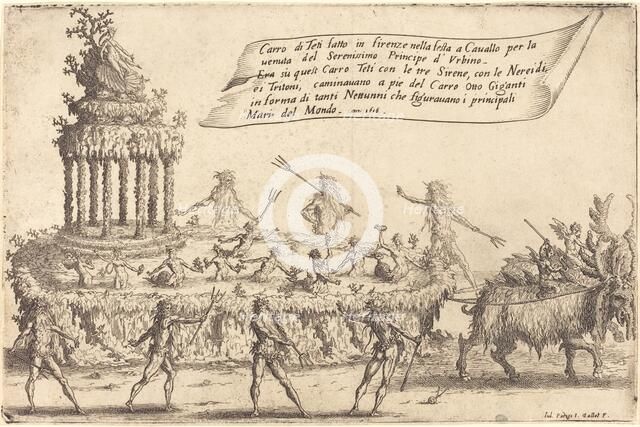 Carro di Teti fatto in firenze nella festa a Cavallo per la
venuta del Serenissimo Principe d' Vrbino.
Era su quest Carro Teti con le tre Sirene, con le Nereidi,
ei Tritoni, caminauano a pie del Carro Otto Giganti
in forma di tanti Nettunni che figurauano i principali
Mari del Mondo.
Iul. Parigi I. Callot F.